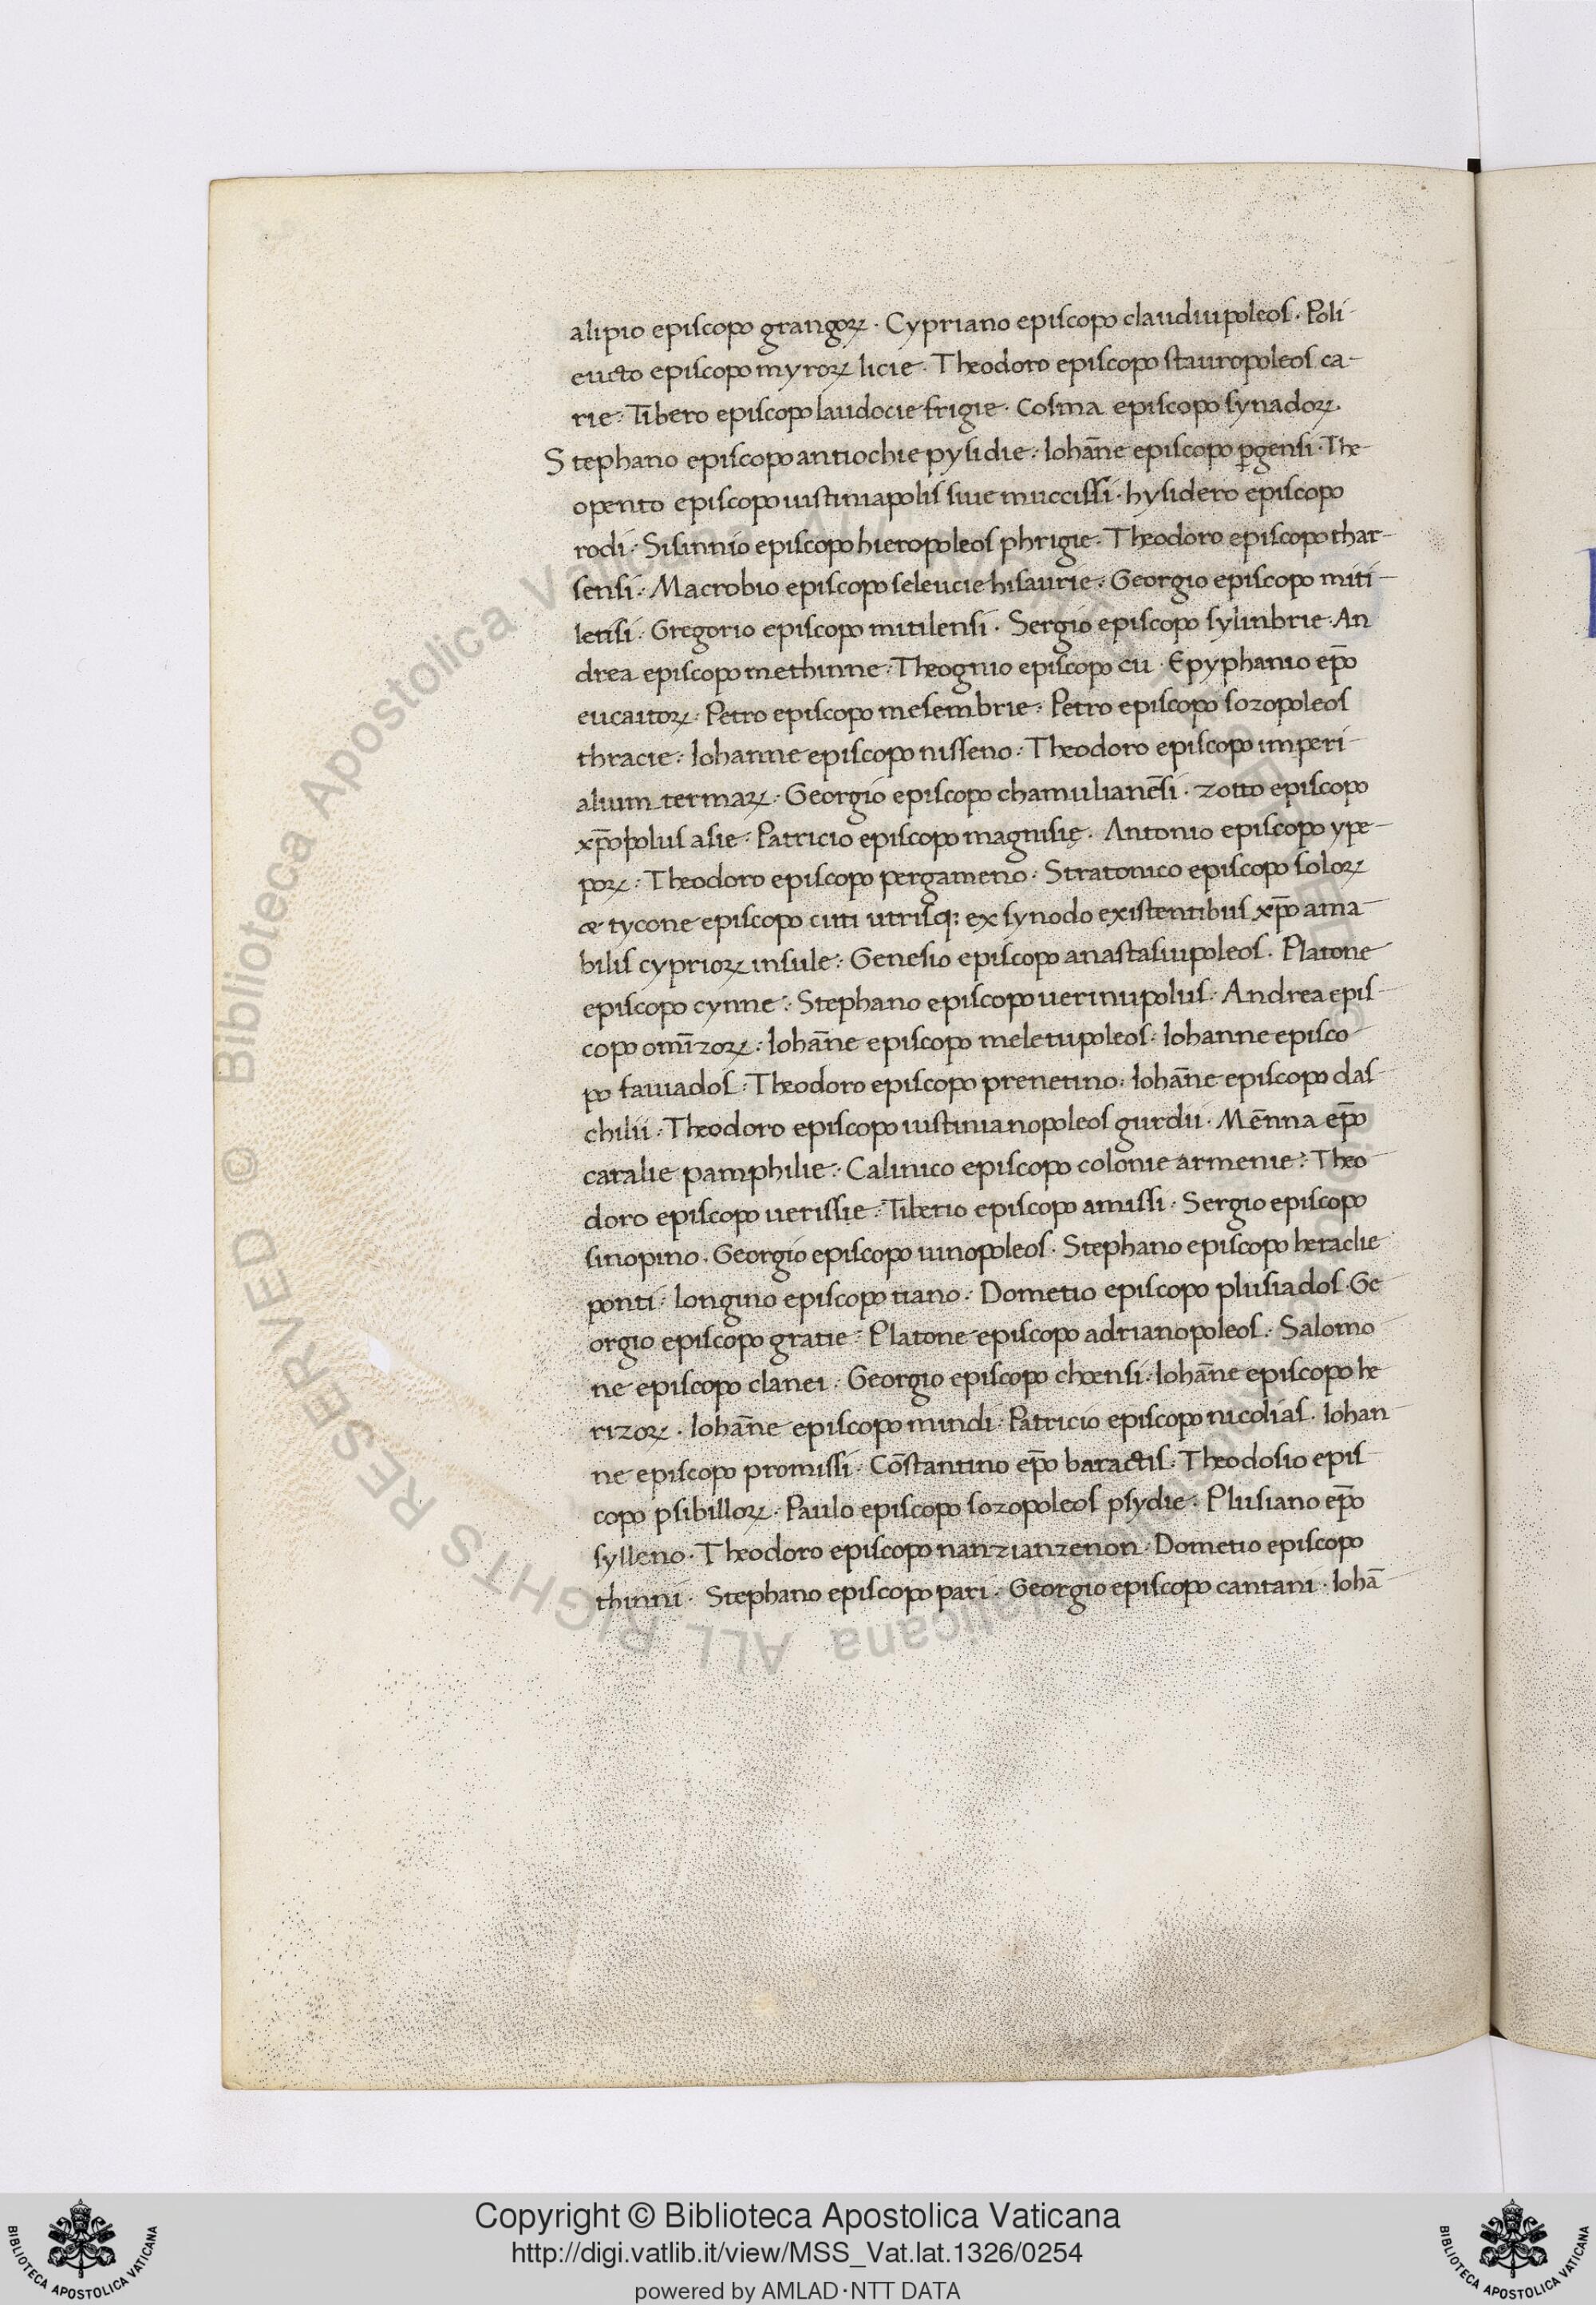 alipio episcopo grangoꝝ · Cypriano episcopo claudiupoleos · Poli
eucto episcopo myroꝝ licie · Theodoro episcopo stauropoleos ca-
rie · Tibero episcopo laudocie frigie · Cosma episcopo synadoꝝ.
Stephano episcopo antiochie pysidie · Iohāne episcopo ꝑgensi · The-
opento episcopo iustiniapolis siue muccissi · hysidero episcopo
rodi · Sisinnio episcopo hieropoleos phrigie · Theodoro episcopo thar-
sensi · Macrobio episcopo seleucie hisaurie · Georgio episcopo miti-
letisi · Gregorio episcopo mitilensi · Sergio episcopo sylinbrie · An
drea episcopo methinne · Theognio episcopo cii · Epyphanio ep̄o
eucaitoꝝ · Petro episcopo mesembrie · Petro episcopo sozopoleos
thracie · Iohanne episcopo nisseno · Theodoro episcopo imperi-
alium termaꝝ · Georgio episcopo chamulianēsi · zotto episcopo
xp̄opolus asie · Patricio episcopo magnisię · Antonio episcopo ype-
poꝝ · Theodoro episcopo pergameno · Stratonico episcopo soloꝝ
& tycone episcopo citti utrisq; ex synodo existentibus xp̄o ama-
bilis cyprioꝝ insule · Genesio episcopo anastasiupoleos · Platone
episcopo cynne · Stephano episcopo uerinupolus · Andrea epis-
copo omīzoꝝ · Iohāne episcopo meletupoleos · Iohanne episco-
po fauiados · Theodoro episcopo prenetino · Iohāne episcopo das-
chilii · Theodoro episcopo iustinianopoleos gurdii · Mēnna ep̄o
caralie pamphilie · Calinico episcopo colonie armenie · Theo
doro episcopo uerissie · Tiberio episcopo amissi · Sergio episcopo
sinopino · Georgio episcopo iunopoleos · Stephano episcopo heraclie
ponti · longino episcopo tiano · Dometio episcopo plusiados · Ge
orgio episcopo gratie · Platone episcopo adrianopoleos · Salomo
ne episcopo clanei · Georgio episcopo choensi · Iohāne episcopo he
rizoꝝ · Iohāne episcopo mindi · Patricio episcopo nicolias · Iohan
ne episcopo promissi · Cōstantino ep̄o baractis · Theodosio epis-
copo psibilloꝝ · Paulo episcopo sozopoleos psydie · Plusiano ep̄o
sylleno · Theodoro episcopo nanzianzenon · Dometio episcopo
thinni · Stephano episcopo pari · Georgio episcopo cantani · Iohā
© Biblioteca Apostolica Vaticana ALL RIGHTS RESERVED
Copyright © Biblioteca Apostolica Vaticana
http://digi.vatlib.it/view/MSS_Vat.lat.1326/0254
powered by AMLAD·NTT DATA
BIBLIOTECA APOSTOLICA VATICANA
BIBLIOTECA APOSTOLICA VATICANA